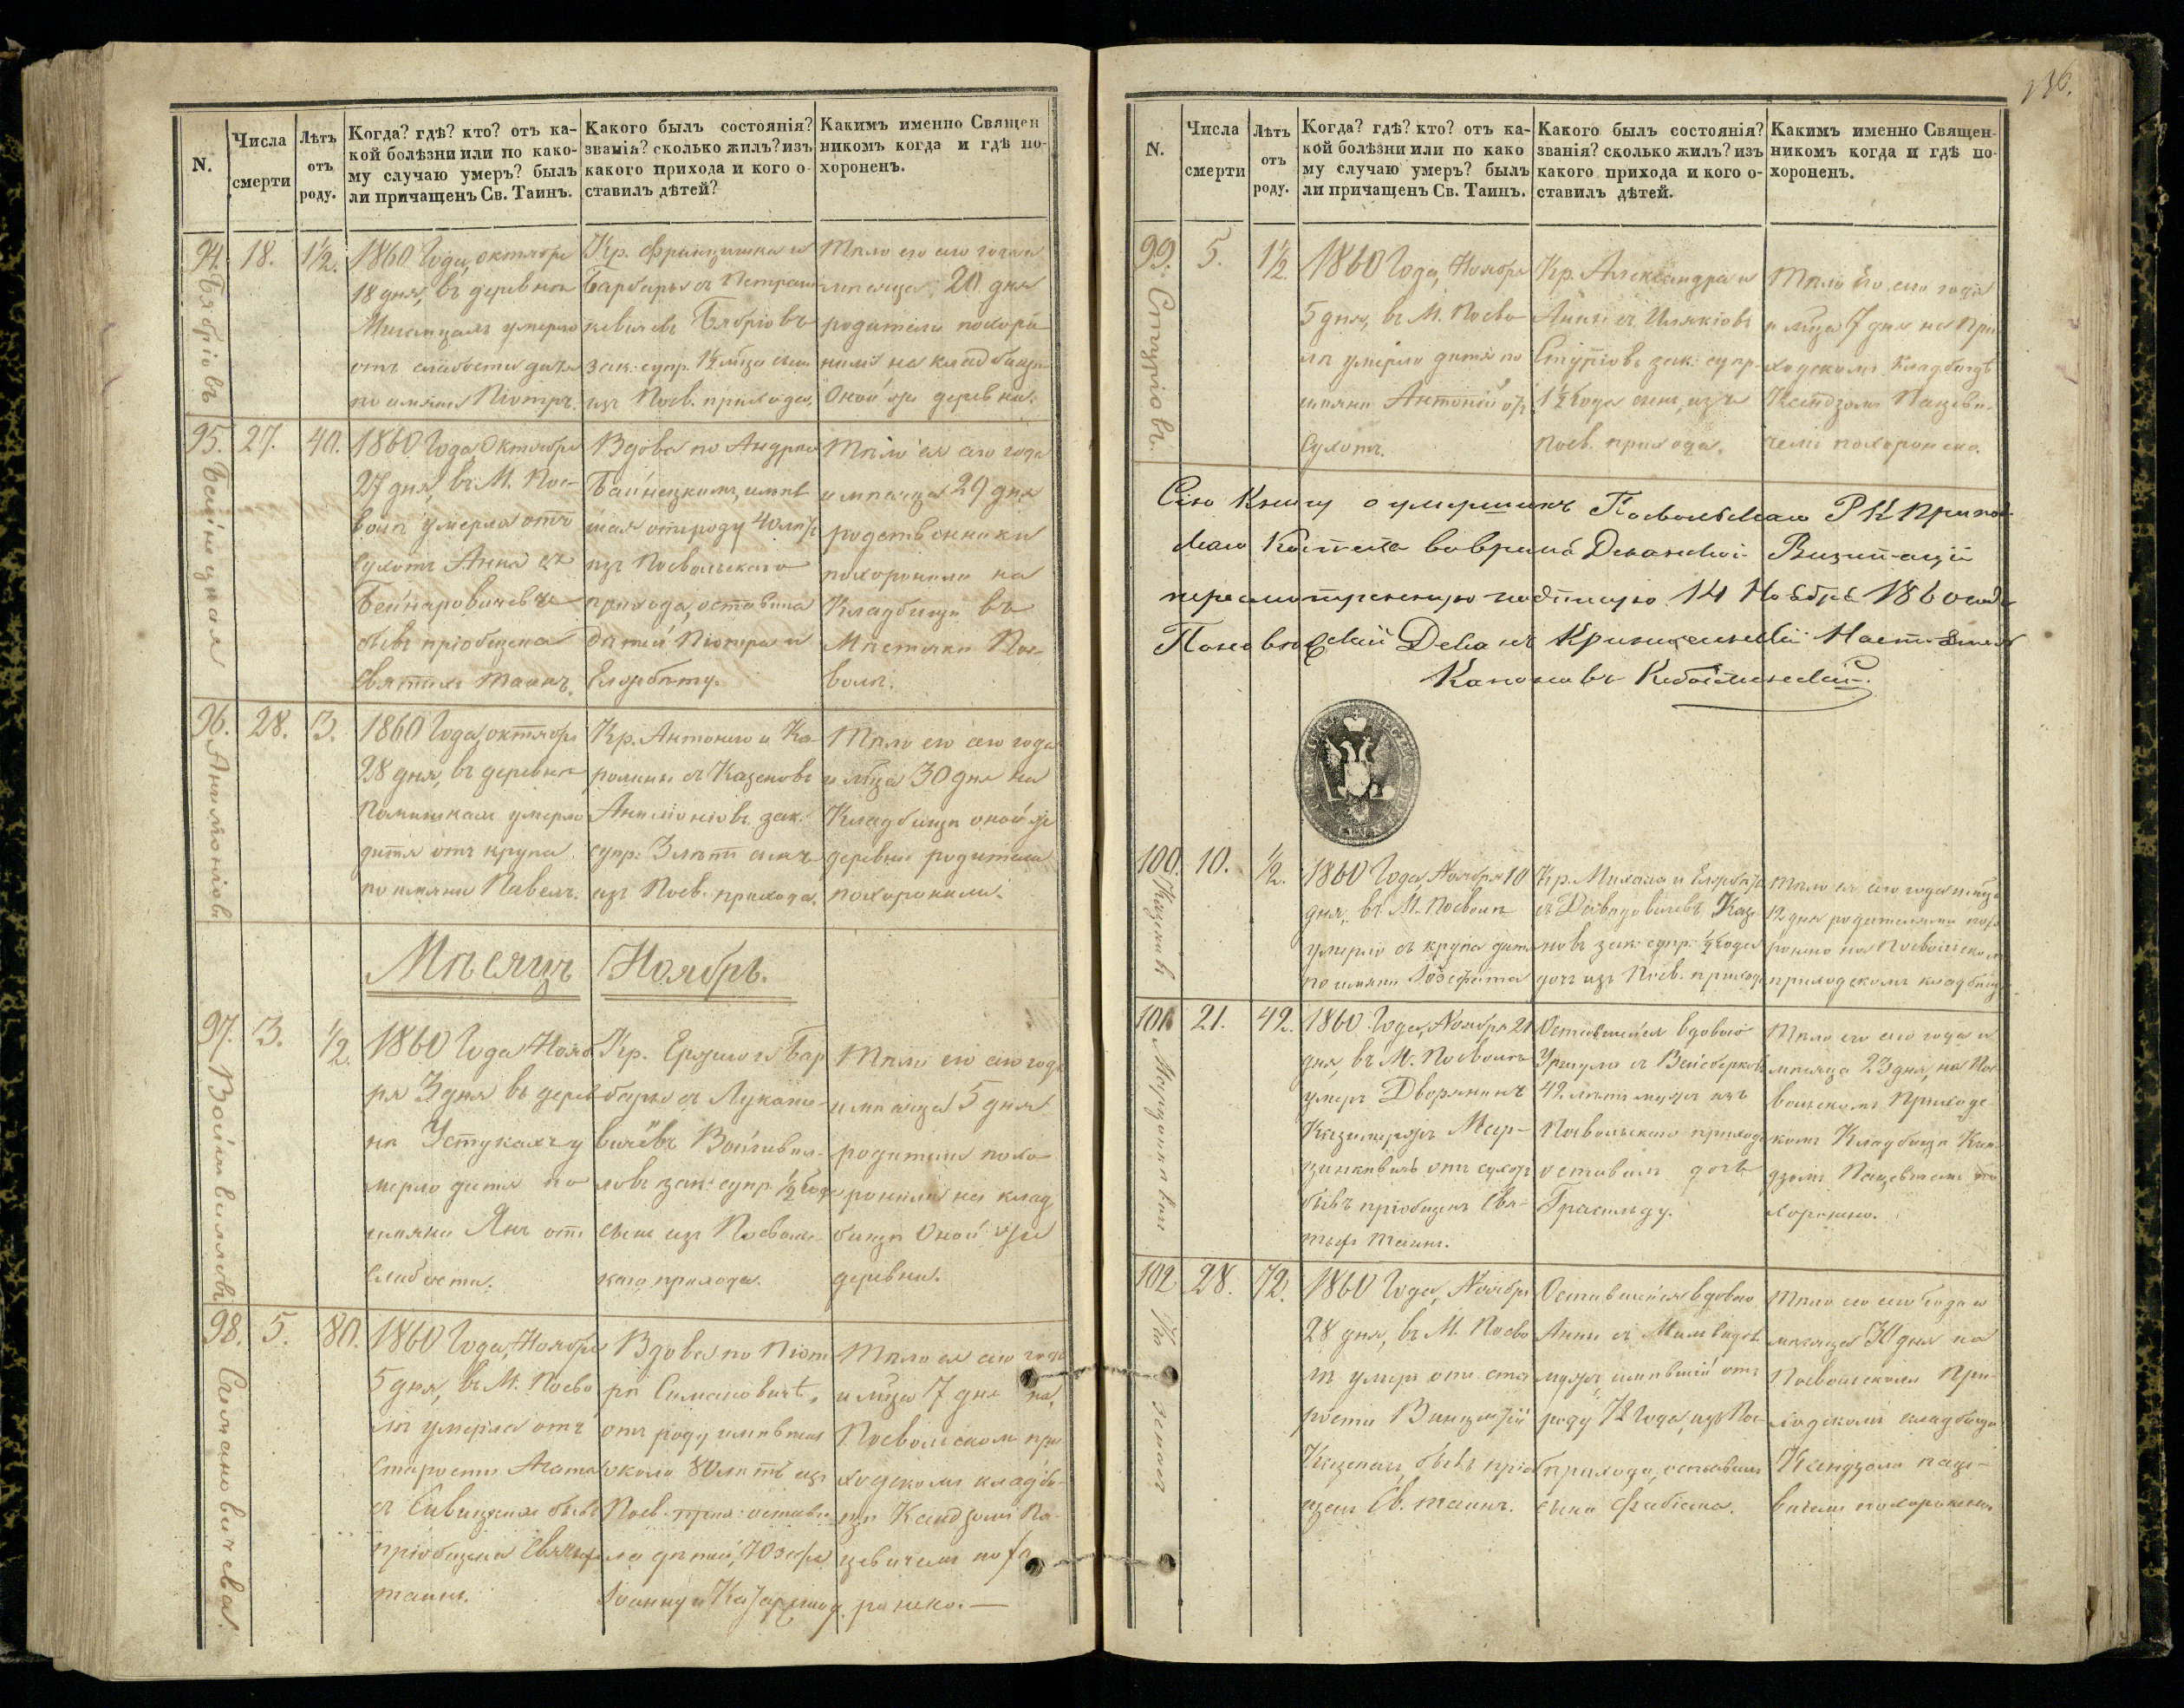 N.
Числа
смерти
Лѣтъ
отъ
роду.
Когда? гдѣ? кто? отъ ка-
кой болѣзни или по како-
му случаю умеръ? былъ
ли причащенъ Св. Таинъ.
Какого былъ состоянія?
званія? сколько жилъ? изъ
какого прихода и кого о-
ставилъ дѣтей?
Какимъ именно Священ
никомъ когда и гдѣ по-
хороненъ.
94.
18.
1½.
1860 Года, октября
18 дня, въ деревнѣ
умерло
отъ слабости дитя
по имяни Піотръ.
Кр. Францишка и
Барбары съ Петраш
кевичевъ Бябріовъ
зак: супр. 1½ сынъ
изъ Посв. прихода.
Тѣло его сего года и
мѣсяца 20 дня
родители похоро
нили на кладбищѣ
оной же деревни.
Бябріовъ
95.
27.
40.
1860 Года, Октября
27 дня, въ М. Пос-
волѣ умерла отъ
Сухотъ Анна съ
Бейнаровичевъ
бывъ пріобщена
Святыхъ Таинъ.
Вдова по Андрею
Бейнецкомъ, имѣв
шая отъ роду 40 лѣтъ
изъ Посвольскаго
прихода, оставила
дѣтей Піотра и
Елзбѣту.
Тѣло ея сего года
и мѣсяца 29 дня
родственники
похоронили на
Кладбищѣ въ
Мѣстечкѣ Пос-
волѣ.
Бейнецкая
96.
28.
3.
1860 Года, октября
28 дня, въ деревнѣ
умерло
дитя отъ крупа
по имяни Павелъ.
Кр. Антонія и Ка-
ролины съ Казеновъ
зак.
супр: 3 лѣтъ сынъ
изъ Посв. прихода.
Тѣло его сего года
и м̃ца 30 дня на
Кладбищѣ оной же
деревни родители
похоронили.
Мѣсяцъ Ноябрь.
97.
3.
½.
1860 Года Нояб
ря 3 дня въ дерев
нѣ Устукахъ у
мерло дитя по
имяни Янъ отъ
Слабости.
Кр. Ержего и Бар
бары съ Лукаше
вичевъ Войтвил-
ловъ зак: супр. ½ года
сынъ изъ Посволь-
каго прихода.
Тѣло его сего года
и мѣсяца 5 дня
родители похо-
ронили на клад
бищѣ оной же
деревни.
Войтвилловъ
98.
5.
80.
1860 Года, Ноября
5 дня, въ М. Посво
лѣ умерла отъ
Старости Агата
съ Савицкихъ бывъ
пріобщена Святыхъ
таинъ.
Вдова по Піот
рѣ Симановичѣ,
отъ роду имѣвшая
около 80 лѣтъ изъ
Посв. прих: остави
ла дѣтей, Юзефа
Іоанну и
Тѣло ея сего года
и м̃ца 7 дня на
Посвольскомъ при
ходскомъ кладби-
щѣ Ксендзомъ Па-
цевичемъ похо
ронено. —
Симановичева.
N.
Числа
смерти
Лѣтъ
отъ
роду.
Когда? гдѣ? кто? отъ ка-
кой болѣзни или по како
му случаю умеръ? былъ
ли причащенъ Св. Таинъ.
Какого былъ состоянія?
званія? сколько жилъ? изъ
какого прихода и кого о-
ставилъ дѣтей.
Какимъ именно Священ-
никомъ когда и гдѣ по-
хороненъ.
99.
5.
1½
1860 Года, Ноября
5 дня, въ М. Посво
лѣ умерло дитя по
имяни Антоній отъ
Сухотъ.
Кр. Александра и
Анны съ
Ступіовъ зак: супр.
1½ года сынъ, изъ
Посв. прихода.
Тѣло его сего года
и м̃ца 7 дня на При
ходскомъ Кладбищѣ
Ксендзомъ Пацеви-
чемъ похоронено.
Стуріовъ
Сію Книгу о умершихъ Посвольскаго РК Приход-
скаго Костела во время Деканской Визитаціи
пересмотренную подписую 14 Ноября 1860 года
Поневѣжскій Деканъ
100.
10.
½.
1860 Года, Ноября 10
дня, въ М. Посволѣ
умерло съ крупа дитя
по имяни Іозефата
Кр. Михала и Елзбѣты
съ Давидовичевъ Казе
новъ зак: супр: ½ года
дочь изъ Посв. прихода
Тѣло ея сего года и м̃ца
12 дня родителями похо
ронено на Посвольскомъ
приходскомъ кладбищѣ
101
21.
42.
1860 Года, Ноября 21
дня, въ М. Посволѣ
умеръ Дворянинъ
Казимержъ Мар-
цинкевичъ отъ сухотъ
бывъ пріобщенъ Свя-
тыхъ таинъ.
Оставшейся вдовою
Уршули съ
42 лѣтъ мужъ изъ
Посвольскаго прихода
оставилъ дочь
Тѣло его сего года и
мѣсяца 23 дня, на Пос-
вольскомъ Приходс-
комъ Кладбищѣ Ксен
дзомъ Пацевичемъ по
хоронено.
102
28.
72.
1860 Года, Ноября
28 дня, въ М. Посво
лѣ умеръ отъ ста
рости Винцентій
Казенасъ, бывъ пріоб
щенъ Св. таинъ.
Оставшейся вдовою
Анны съ
мужъ, имѣвшій отъ
роду 72 года, изъ Пос-
прихода, оставилъ
сына Фабіана.
Тѣло его сего года и
мѣсяца 30 дня на
Посвольскомъ При-
ходскомъ кладбищѣ
Ксендзомъ Паце-
вичемъ похоронено